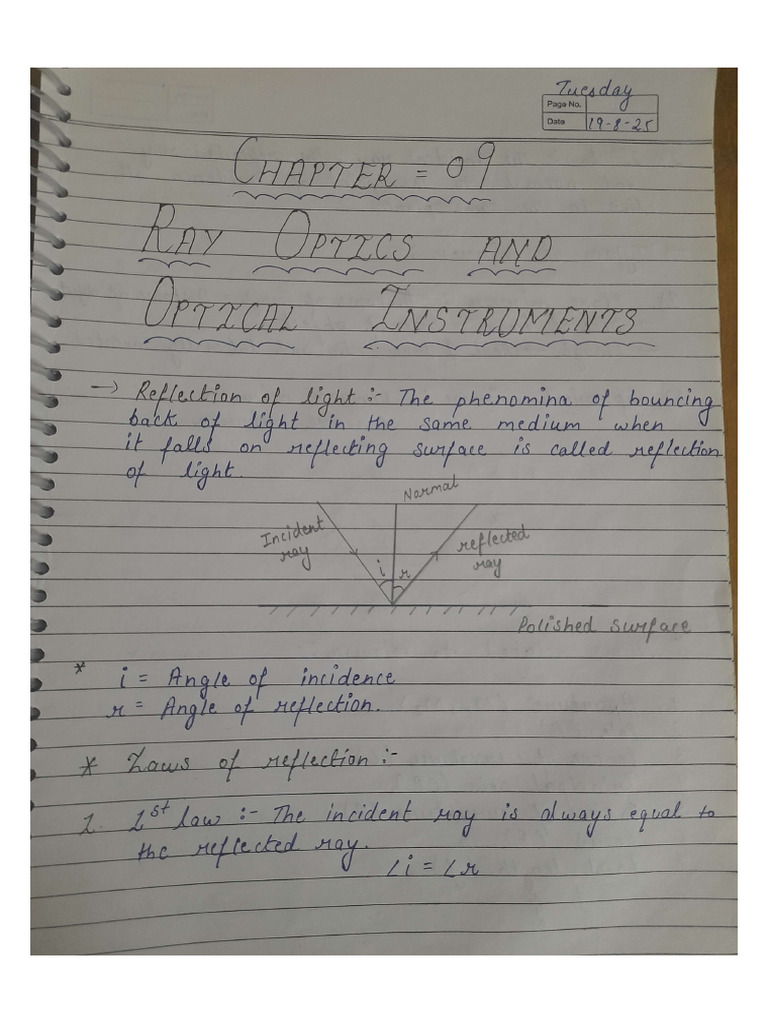 Tuesday
Page No.
Date 19-8-25
CHAPTER = 09
RAY OPTICS AND
OPTICAL INSTRUMENTS
→ Reflection of light :- The phenomina of bouncing
back of light in the same medium when
it falls on reflecting surface is called reflection
of light.
Normal
Incident
ray
reflected
ray
i r
Polished surface
* i = Angle of incidence
r = Angle of reflection.
* Laws of reflection :-
1. 1st law :- The incident ray is always equal to
the reflected ray.
∠i = ∠r